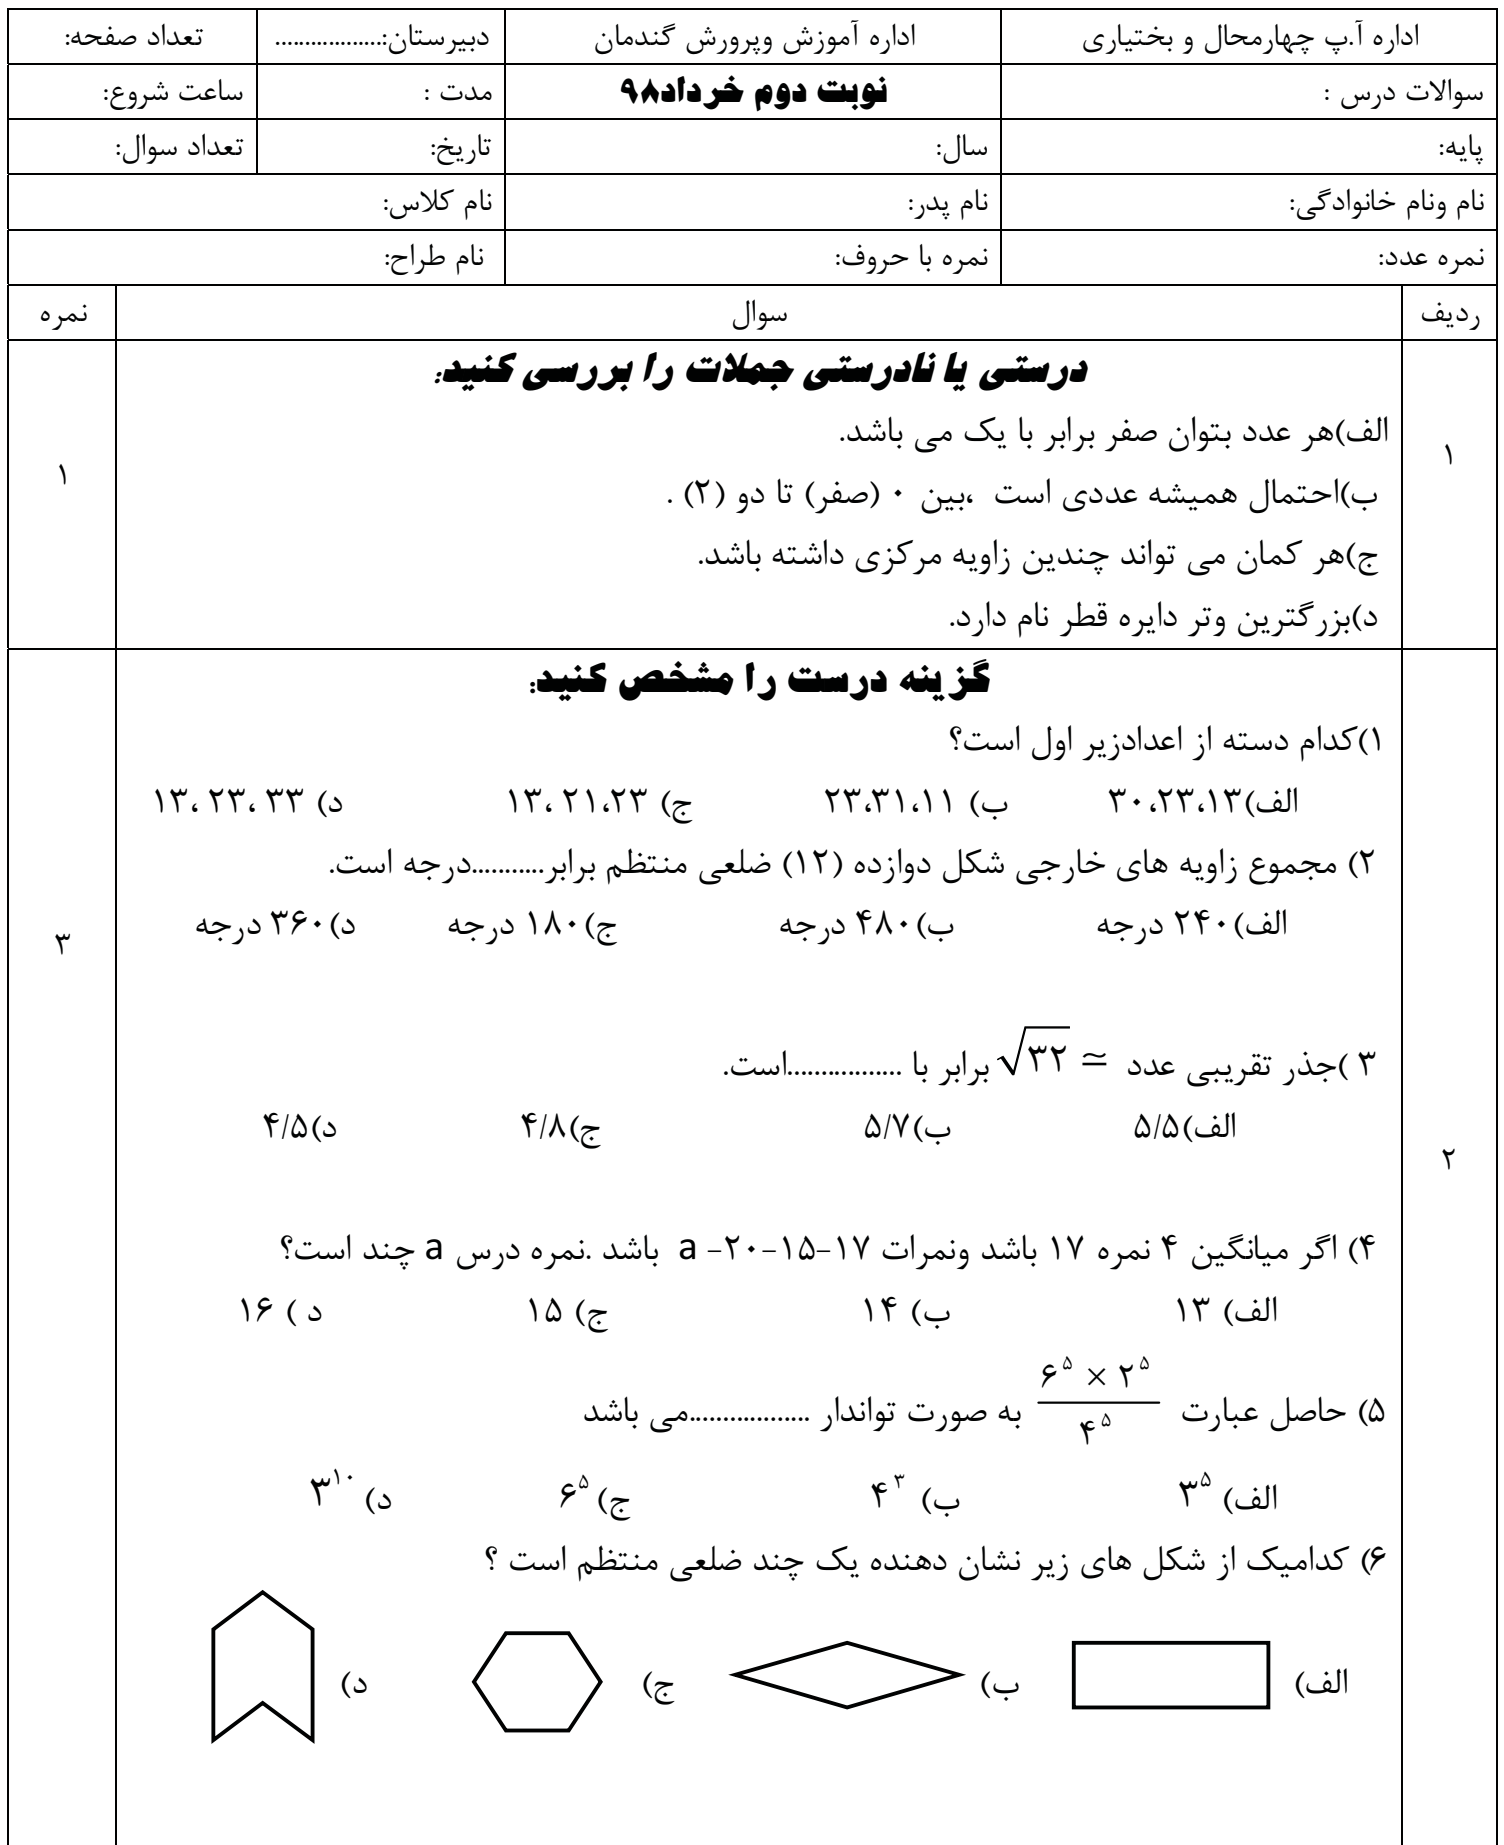 اداره آ.پ چهارمحال و بختیاری اداره آموزش وپرورش گندمان دبیرستان:.................. تعداد صفحه:
سوالات درس : نوبت دوم خرداد۹۸ مدت : ساعت شروع:
پایه: سال: تاریخ: تعداد سوال:
نام ونام خانوادگی: نام پدر: نام کلاس:
نمره عدد: نمره با حروف: نام طراح:
ردیف سوال نمره
درستی یا نادرستی جملات را بررسی کنید:
الف)هر عدد بتوان صفر برابر با یک می باشد.
۱ ۱
ب)احتمال همیشه عددی است ،بین ۰ (صفر) تا دو (۲) .
ج)هر کمان می تواند چندین زاویه مرکزی داشته باشد.
د)بزرگترین وتر دایره قطر نام دارد.
گزینه درست را مشخص کنید:
۱)کدام دسته از اعدادزیر اول است؟
الف)۳۰،۲۳،۱۳ ب) ۲۳،۳۱،۱۱ ج) ۱۳، ۲۱،۲۳ د) ۳۳ ،۲۳ ،۱۳
۲) مجموع زاویه های خارجی شکل دوازده (۱۲) ضلعی منتظم برابر...........درجه است.
الف)۲۴۰ درجه ب)۴۸۰ درجه ج)۱۸۰ درجه د)۳۶۰ درجه
۳
۳ )جذر تقریبی عدد ≃ √۳۲ برابر با .................است.
الف)۵/۵ ب)۵/۷ ج)۴/۸ د)۴/۵
۲
۴) اگر میانگین ۴ نمره ۱۷ باشد ونمرات ۱۷-۱۵-۲۰- a باشد .نمره درس a چند است؟
الف) ۱۳ ب) ۱۴ ج) ۱۵ د ) ۱۶
۵) حاصل عبارت (۶^۵ × ۲^۵)/۴^۵ به صورت تواندار ..................می باشد
الف) ۳^۵ ب) ۴^۳ ج) ۶^۵ د) ۳^۱۰
۶) کدامیک از شکل های زیر نشان دهنده یک چند ضلعی منتظم است ؟
الف) ب) ج) د)